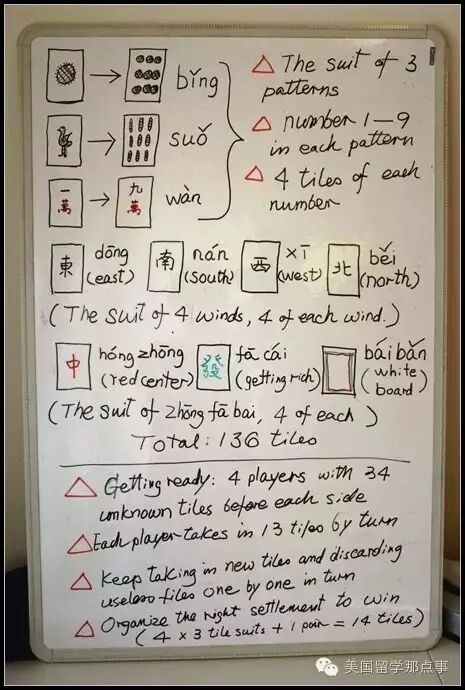 bǐng
The suit of 3
patterns
suǒ
number 1—9
in each pattern
一萬 九萬
wàn
4 tiles of each
number
東 dōng (east) 南 nán (south) 西 xī (west) 北 běi (north)
(The suit of 4 winds, 4 of each wind.)
中 hóng zhōng (red center) 發 fā cái (getting rich) bái bǎn (white board)
(The suit of zhōng fā bai, 4 of each)
Total: 136 tiles
Getting ready: 4 players with 34
unknown tiles before each side
Each player takes in 13 tiles by turn
Keep taking in new tiles and discarding
useless tiles one by one in turn
Organize the right settlement to win
(4 x 3 tile suits + 1 pair = 14 tiles)
美国留学那点事